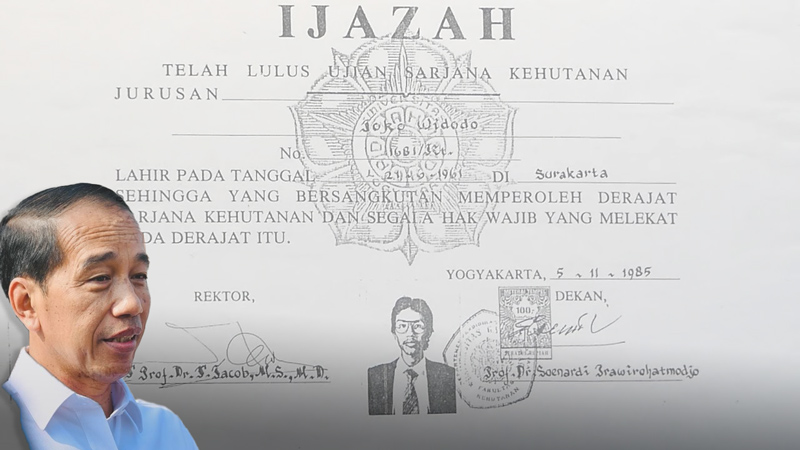 IJAZAH
TELAH LULUS UJIAN SARJANA KEHUTANAN
JURUSAN
Joko Widodo
No. 1681/Kt.
LAHIR PADA TANGGAL 21-6-1961 DI Surakarta
SEHINGGA YANG BERSANGKUTAN MEMPEROLEH DERAJAT
SARJANA KEHUTANAN DAN SEGALA HAK WAJIB YANG MELEKAT
PADA DERAJAT ITU.
YOGYAKARTA, 5-11-1985
REKTOR,
DEKAN,
100
Prof. Dr. T. Jacob, M.S., M.D.
Prof. Dr. Soenardi Prawirohatmodjo
KEHUTANAN